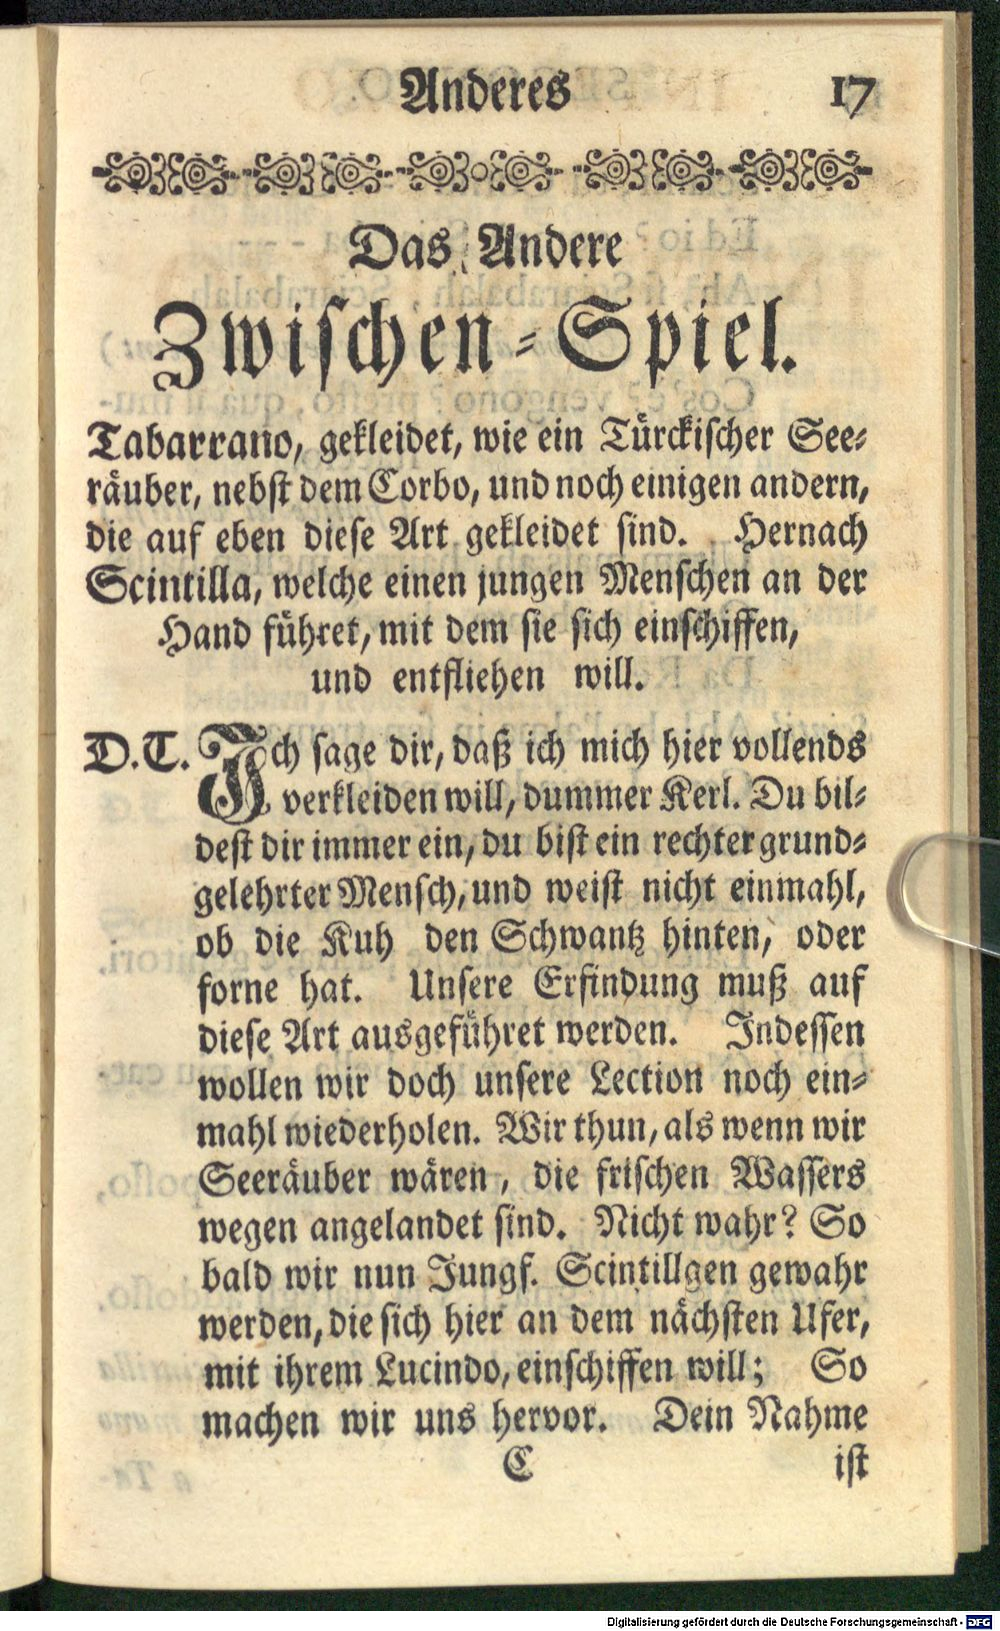 Anderes 17
Das Andere
Zwischen-Spiel.
Tabarrano, gekleidet, wie ein Türckischer See-
räuber, nebst dem Corbo, und noch einigen andern,
die auf eben diese Art gekleidet sind. Hernach
Scintilla, welche einen jungen Menschen an der
Hand führet, mit dem sie sich einschiffen,
und entfliehen will.
D.T. Ich sage dir, daß ich mich hier vollends
verkleiden will, dummer Kerl. Du bil-
dest dir immer ein, du bist ein rechter grund-
gelehrter Mensch, und weist nicht einmahl,
ob die Kuh den Schwantz hinten, oder
forne hat. Unsere Erfindung muß auf
diese Art ausgeführet werden. Indessen
wollen wir doch unsere Lection noch ein-
mahl wiederholen. Wir thun, als wenn wir
Seeräuber wären, die frischen Wassers
wegen angelandet sind. Nicht wahr? So
bald wir nun Jungf. Scintillgen gewahr
werden, die sich hier an dem nächsten Ufer,
mit ihrem Lucindo, einschiffen will; So
machen wir uns hervor. Dein Nahme
C ist
Digitalisierung gefördert durch die Deutsche Forschungsgemeinschaft - DFG